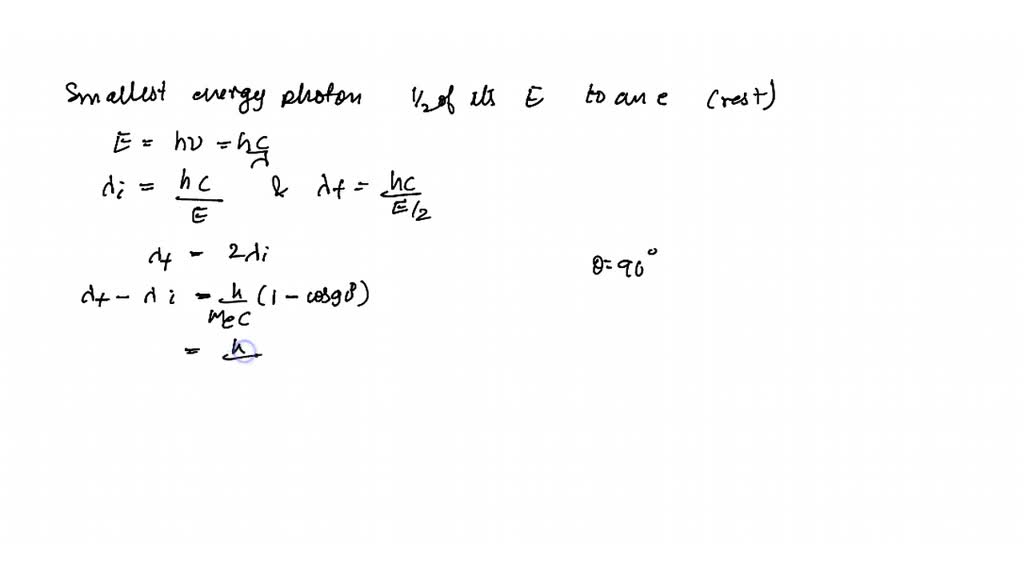 Smallest energy photon 1/2 of its E to an e (rest)
E = hν = hc/λ
λi = hc/E & λf = hc/E/2
λf = 2λi
θ=90°
λf - λi = h/MeC (1 - cos90°)
= h